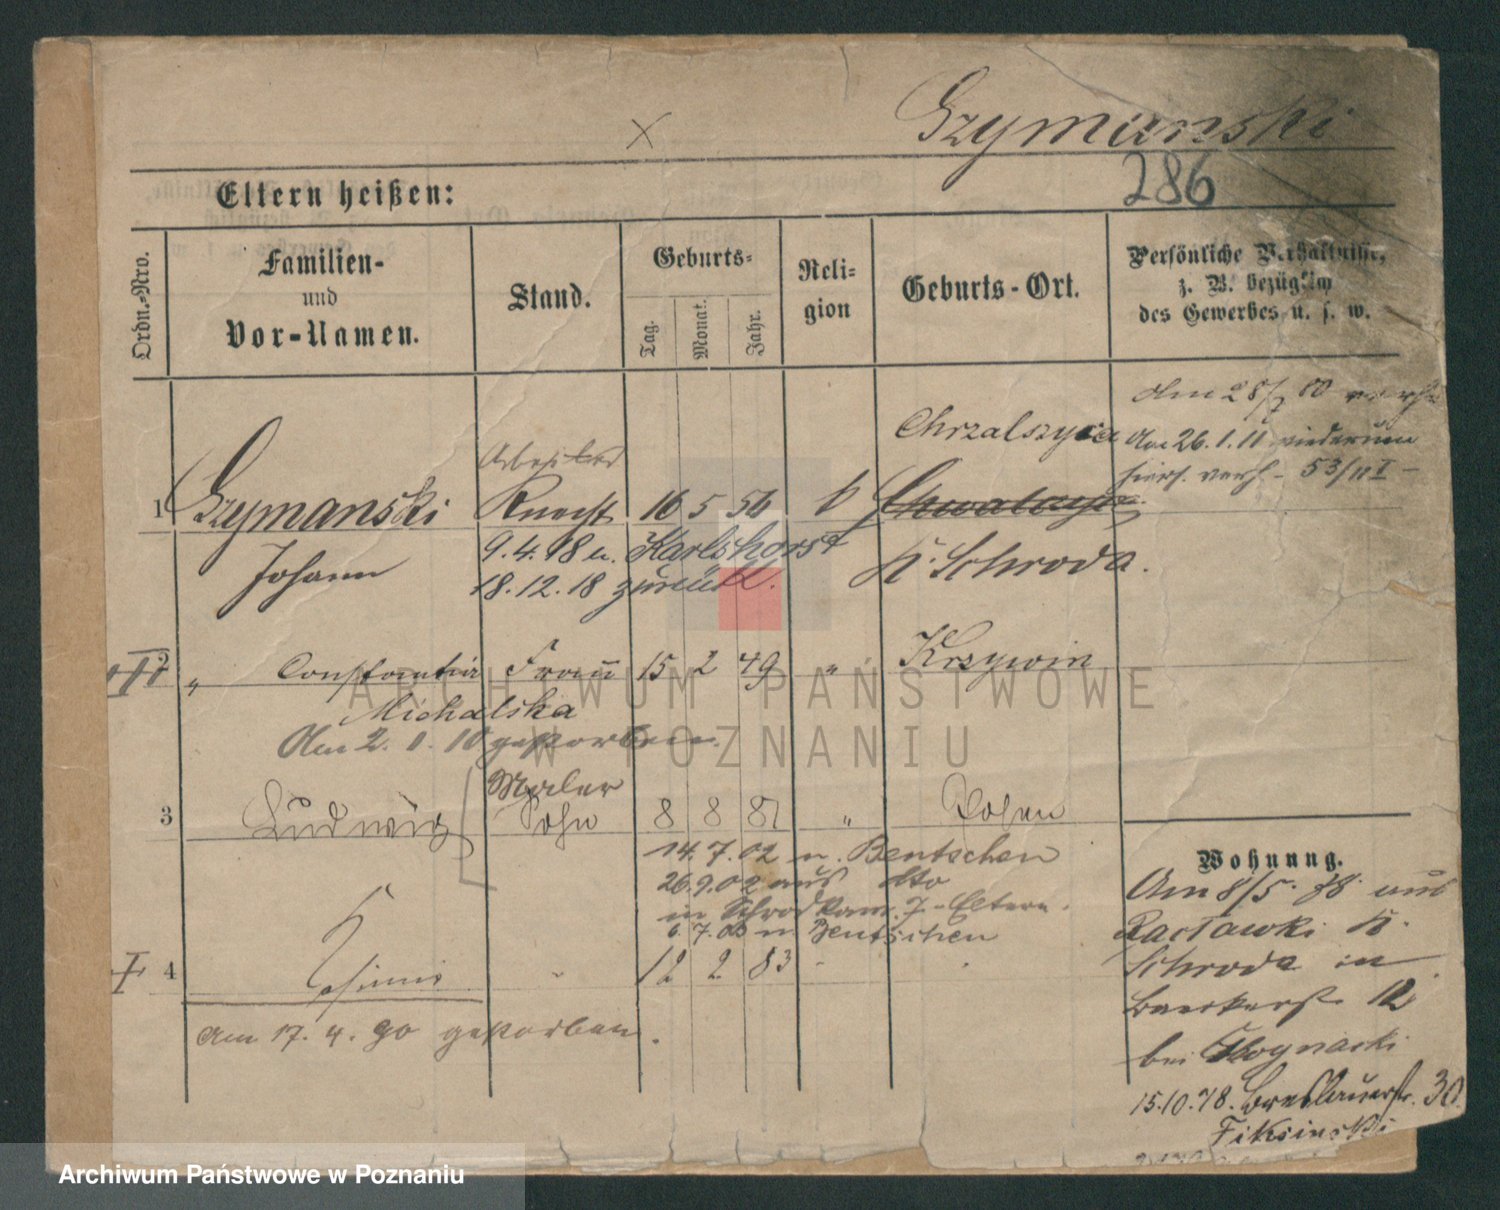 Szymanski
X
286
Eltern heißen:
Ordn.-Nro.
Familien-
und
Vor-Namen.
Stand.
Geburts-
Tag.
Monat.
Jahr.
Reli-
gion
Geburts-Ort.
Persönliche Verhältnisse,
z. B. bezüglich
des Gewerbes u. s. w.
1 Szymanski
Johann
Arbeiter
Knecht 16 5 56 k
9.4.18 n. Karlshorst
18.12.18 zurück.
Chrzalszyca
K. Schroda.
Am 28/7 80
Am 26.1.11 wiederum
53/11 I -
2 " Constantia Frau 15 2 49 " Krzywin
Michalska
Am 2. 1. 10 gestorben.
3 Ludwig
Maler
Sohn 8 8 81 " Posen
14.7.02 n. Bentschen
26.9.02 aus dto
in Schrodkam. 7 - Eltern.
6.7.03 n. Bentschen
4 12 2 83
Am 17. 4. 90 gestorben.
Wohnung.
Am 8/5. 88. aus
Raclawki K.
Schroda in
12
bei
15.10.78. Breslauerstr. 30
Fiksinski
ARCHIWUM PAŃSTWOWE
W POZNANIU
Archiwum Państwowe w Poznaniu